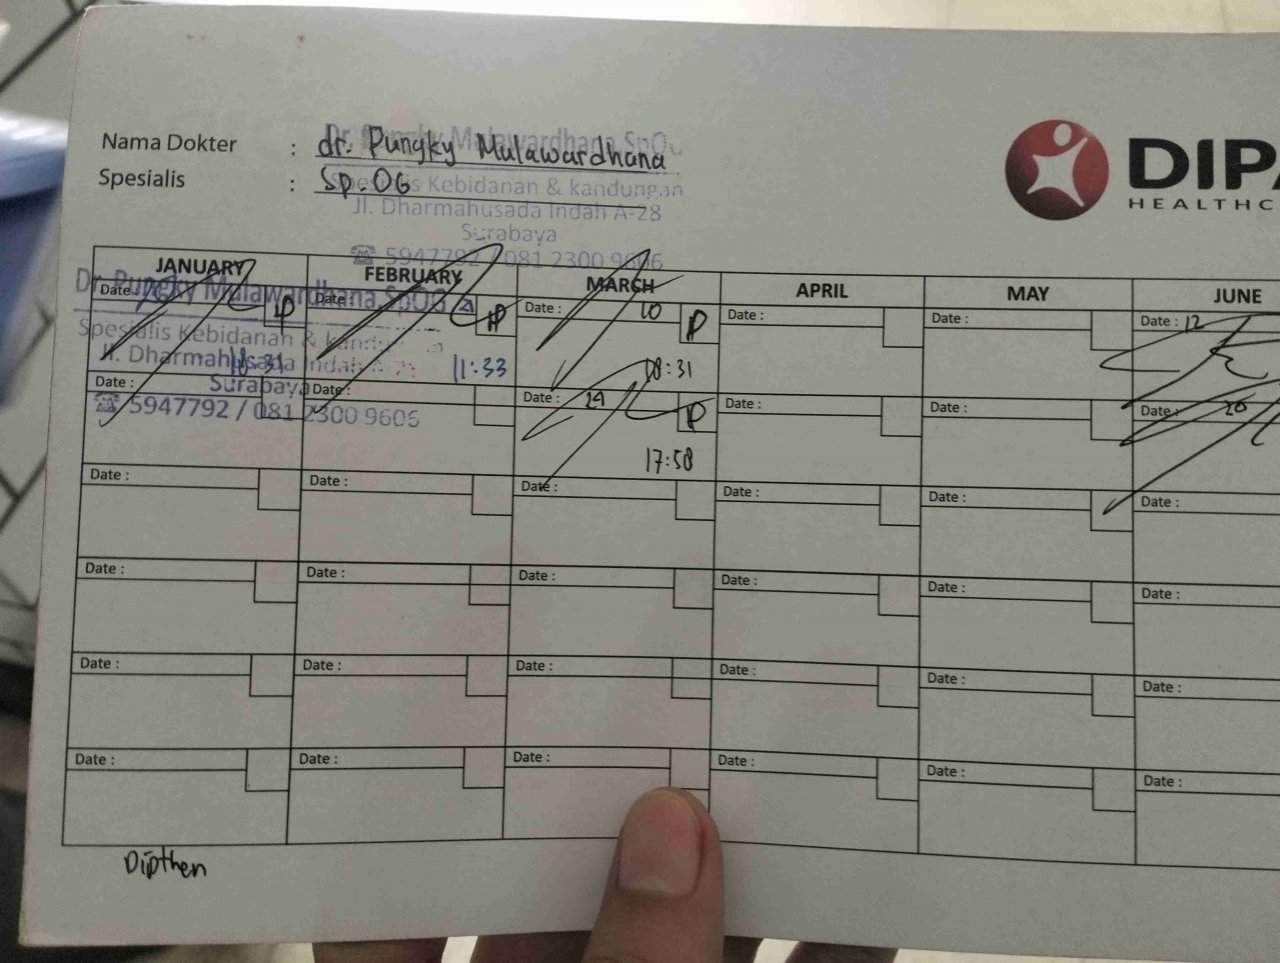 Nama Dokter : dr. Pungky Mulawardhana
Spesialis : Sp.OG
Dr. Pungky Mulawardhana,SpOG
Spesialis Kebidanan & kandungan
Jl. Dharmahusada Indah A-28
Surabaya
☎ 5947792 / 081 2300 9606
DIPA
HEALTHC
JANUARY FEBRUARY MARCH APRIL MAY JUNE
Dr. Pungky Mulawardhana,SpOG
Spesialis Kebidanan &
Jl. Dharmahusada Indah
Surabaya
☎ 5947792 / 081 2300 9606
Date : Date : Date : 10 Date : Date : Date : 12
P P P
18:31 11:33 08:31
Date : Date : Date : 29 Date : Date : Date : 20
P
17:58
Date : Date : Date : Date : Date : Date :
Date : Date : Date : Date : Date : Date :
Date : Date : Date : Date : Date : Date :
Date : Date : Date : Date : Date : Date :
Dipthen